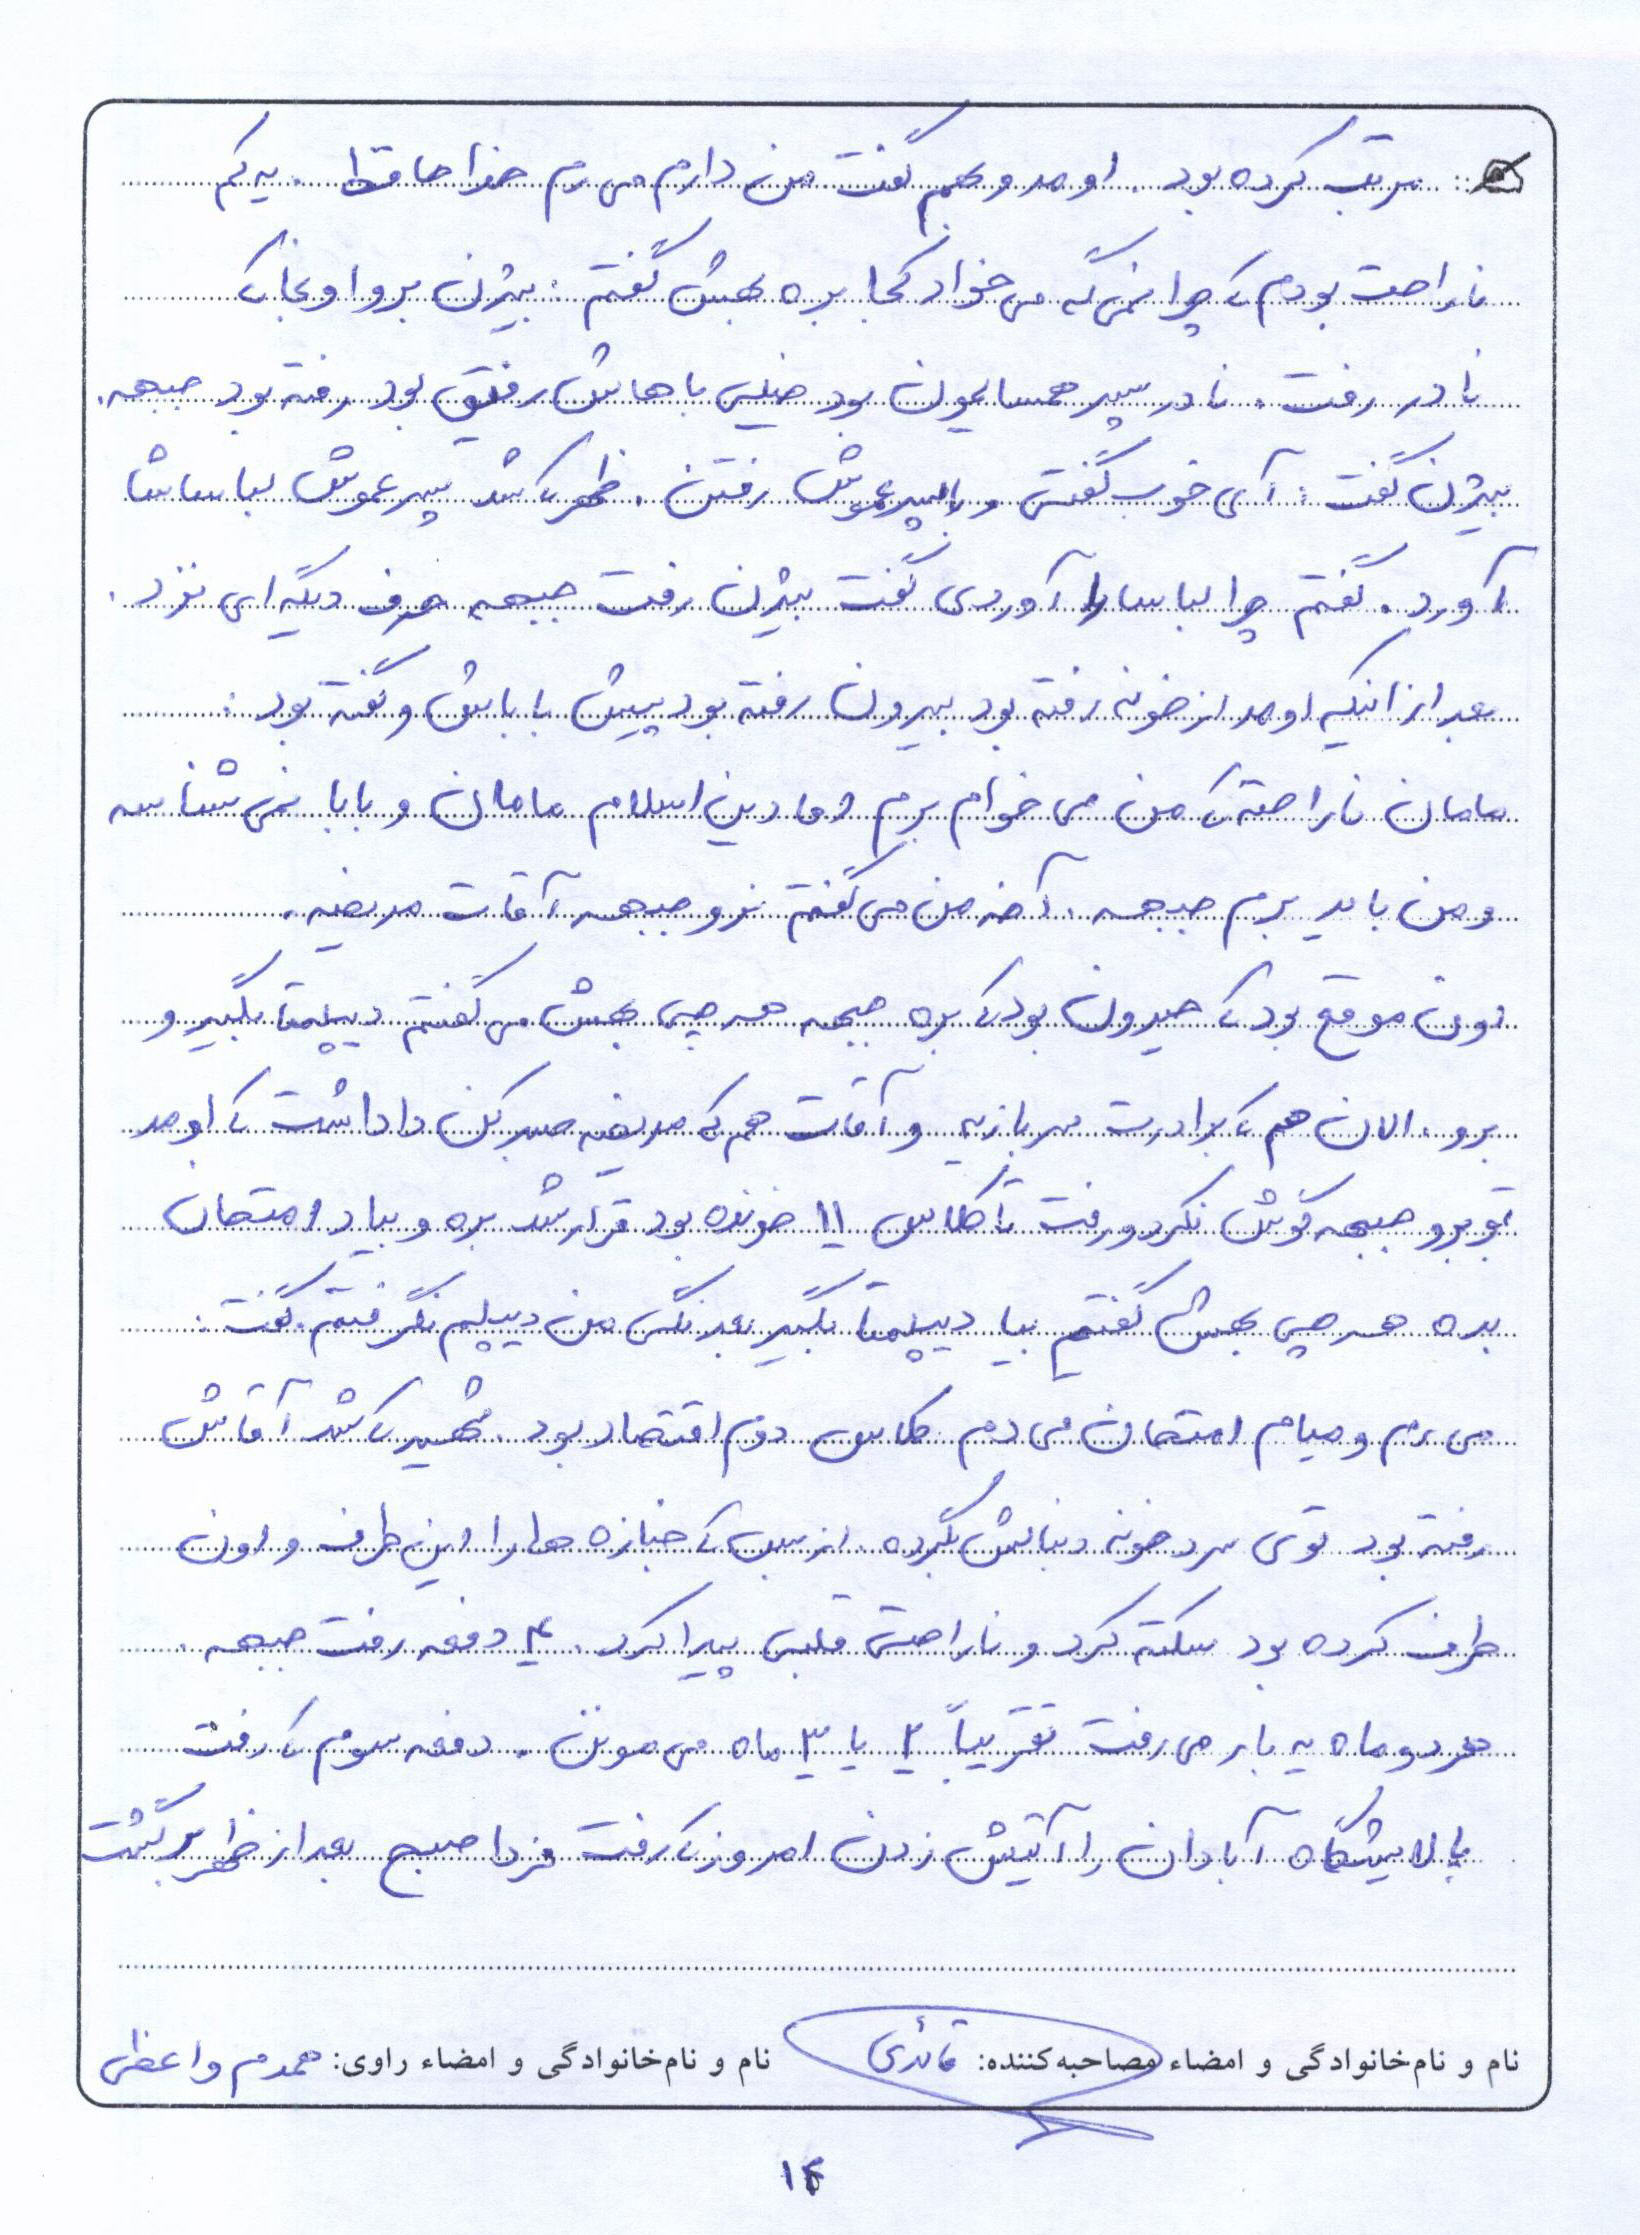 مرتب کرده بود. اومد و بهم گفت من دارم می رم خداحافظ. یه کم
ناراحت بودم که چرا نمی گه می خواد کجا بره بهش گفتم: بیژن برو اونجا که
نادر رفت. نادر پسر همسایمون بود خیلی باهاش رفیق بود رفته بود جبهه.
بیژن گفت: آی خوب گفتی و با پسر عموش رفتن. ظهر که شد پسر عموش لباساشا
آورد. گفتم چرا لباسارا آوردی گفت بیژن رفت جبهه حرف دیگه ای نزد.
بعد از اینکه اومد از خونه رفته بود بیرون رفته بود پیش باباش و گفته بود:
مامان ناراحته که من می خوام برم اما دین اسلام مامان و بابا نمی شناسه
و من باید برم جبهه. آخه من می گفتم نرو جبهه آقات مریضه.
اون موقع بود که حیرون بود که بره جبهه هر چی بهش می گفتم دیپلمتا بگیر و
برو. الان هم که برادرت سربازیه و آقات هم که مریضه صبر کن داداشت که اومد
تو برو جبهه گوش نکرد و رفت تا کلاس ۱۱ خونده بود قرار شد بره و بیاد امتحان
بده هر چی بهش گفتم بیا دیپلمتا بگیر بعد نگی من دیپلم نگرفتم. گفت:
می رم و میام امتحان می دم کلاس دوم اقتصاد بود. شهید که شد آقاش
رفته بود توی سردخونه دنبالش بگرده. از بس که جنازه ها را این طرف و اون
طرف کرده بود سکته کرد و ناراحتی قلبی پیدا کرد. ۴ دفعه رفت جبهه.
هر دو ماه یه بار می رفت تقریباً ۲ یا ۳ ماه می موند. دفعه سوم که رفت
پالایشگاه آبادان را آتیش زدن امروز که رفت فردا صبح بعد از ظهر برگشت
نام و نام‌خانوادگی و امضاء مصاحبه‌کننده: قائدی نام و نام‌خانوادگی و امضاء راوی: همدم واعظی
۱۴